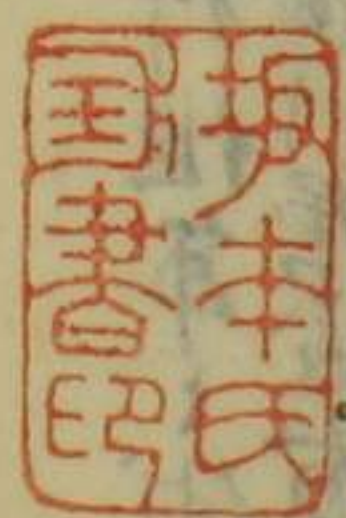 坂本氏
国書印